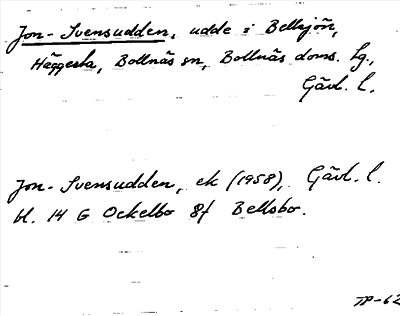 Jon-Svensudden, udde i Bellsjön,
Häggesta, Bollnäs sn, Bollnäs doms. tg.,
Gävl. l.
Jon-Svensudden, ek (1958), Gävl. l.
bl. 14 G Ockelbo 8f Bellsbo.
TP-62